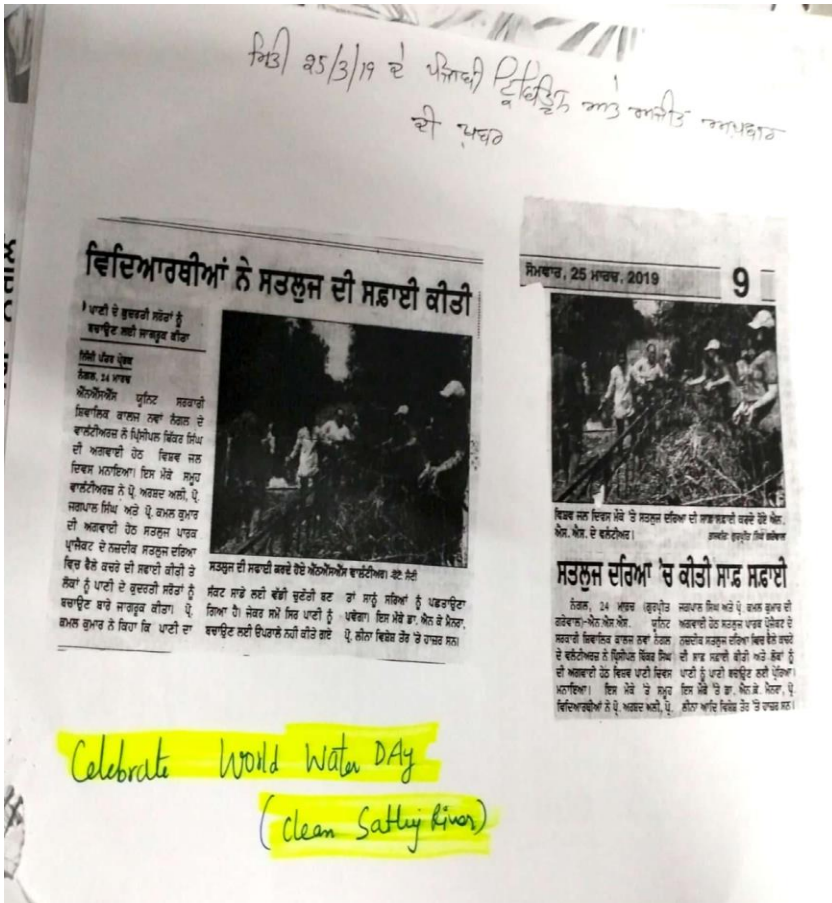 ਮਿਤੀ 25/3/19 ਦੇ ਪੰਜਾਬੀ ਟ੍ਰਿਬਿਊਨ ਅਤੇ ਅਜੀਤ ਅਖ਼ਬਾਰ
ਦੀ ਖ਼ਬਰ
ਵਿਦਿਆਰਥੀਆਂ ਨੇ ਸਤਲੁਜ ਦੀ ਸਫ਼ਾਈ ਕੀਤੀ
ਪਾਣੀ ਦੇ ਕੁਦਰਤੀ ਸਰੋਤਾਂ ਨੂੰ
ਬਚਾਉਣ ਲਈ ਜਾਗਰੂਕ ਕੀਤਾ
ਨਿੱਜੀ ਪੱਤਰ ਪ੍ਰੇਰਕ
ਨੰਗਲ, 24 ਮਾਰਚ
ਐੱਨਐੱਸਐੱਸ ਯੂਨਿਟ ਸਰਕਾਰੀ
ਸ਼ਿਵਾਲਿਕ ਕਾਲਜ ਨਵਾਂ ਨੰਗਲ ਦੇ
ਵਾਲੰਟੀਅਰਜ਼ ਨੇ ਪ੍ਰਿੰਸੀਪਲ ਬਿੱਕਰ ਸਿੰਘ
ਦੀ ਅਗਵਾਈ ਹੇਠ ਵਿਸ਼ਵ ਜਲ
ਦਿਵਸ ਮਨਾਇਆ। ਇਸ ਮੌਕੇ ਸਮੂਹ
ਵਾਲੰਟੀਅਰਜ਼ ਨੇ ਪ੍ਰੋ. ਅਰਸ਼ਦ ਅਲੀ, ਪ੍ਰੋ.
ਜਗਪਾਲ ਸਿੰਘ ਅਤੇ ਪ੍ਰੋ. ਕਮਲ ਕੁਮਾਰ
ਦੀ ਅਗਵਾਈ ਹੇਠ ਸਤਲੁਜ ਪਾਰਕ
ਪ੍ਰਾਜੈਕਟ ਦੇ ਨਜ਼ਦੀਕ ਸਤਲੁਜ ਦਰਿਆ
ਵਿਚ ਫੈਲੇ ਕਚਰੇ ਦੀ ਸਫ਼ਾਈ ਕੀਤੀ ਤੇ
ਲੋਕਾਂ ਨੂੰ ਪਾਣੀ ਦੇ ਕੁਦਰਤੀ ਸਰੋਤਾਂ ਨੂੰ
ਬਚਾਉਣ ਬਾਰੇ ਜਾਗਰੂਕ ਕੀਤਾ। ਪ੍ਰੋ.
ਕਮਲ ਕੁਮਾਰ ਨੇ ਕਿਹਾ ਕਿ ਪਾਣੀ ਦਾ
ਸਤਲੁਜ ਦੀ ਸਫਾਈ ਕਰਦੇ ਹੋਏ ਐੱਨਐੱਸਐੱਸ ਵਾਲੰਟੀਅਰ।
ਸੰਕਟ ਸਾਡੇ ਲਈ ਵੱਡੀ ਚੁਣੌਤੀ ਬਣ
ਗਿਆ ਹੈ। ਜੇਕਰ ਸਮੇਂ ਸਿਰ ਪਾਣੀ ਨੂੰ
ਬਚਾਉਣ ਲਈ ਉਪਰਾਲੇ ਨਹੀਂ ਕੀਤੇ ਗਏ
ਤਾਂ ਸਾਨੂੰ ਸਾਰਿਆਂ ਨੂੰ ਪਛਤਾਉਣਾ
ਪਵੇਗਾ। ਇਸ ਮੌਕੇ ਡਾ. ਐਨ ਕੇ ਮੈਨਰਾ,
ਪ੍ਰੋ. ਲੀਨਾ ਵਿਸ਼ੇਸ਼ ਤੌਰ 'ਤੇ ਹਾਜ਼ਰ ਸਨ।
ਸੋਮਵਾਰ, 25 ਮਾਰਚ, 2019 9
ਵਿਸ਼ਵ ਜਲ ਦਿਵਸ ਮੌਕੇ 'ਤੇ ਸਤਲੁਜ ਦਰਿਆ ਦੀ ਸਾਫ਼ ਸਫ਼ਾਈ ਕਰਦੇ ਹੋਏ ਐਨ.
ਐਸ. ਐਸ. ਦੇ ਵਲੰਟੀਅਰ। ਤਸਵੀਰ: ਗੁਰਪ੍ਰੀਤ ਸਿੰਘ ਗਰੇਵਾਲ
ਸਤਲੁਜ ਦਰਿਆ 'ਚ ਕੀਤੀ ਸਾਫ਼ ਸਫ਼ਾਈ
ਨੰਗਲ, 24 ਮਾਰਚ (ਗੁਰਪ੍ਰੀਤ
ਗਰੇਵਾਲ)-ਐਨ ਐਸ ਐਸ. ਯੂਨਿਟ
ਸਰਕਾਰੀ ਸ਼ਿਵਾਲਿਕ ਕਾਲਜ ਨਵਾਂ ਨੰਗਲ
ਦੇ ਵਲੰਟੀਅਰਜ਼ ਨੇ ਪ੍ਰਿੰਸੀਪਲ ਬਿੱਕਰ ਸਿੰਘ
ਦੀ ਅਗਵਾਈ ਹੇਠ ਵਿਸ਼ਵ ਪਾਣੀ ਦਿਵਸ
ਮਨਾਇਆ। ਇਸ ਮੌਕੇ 'ਤੇ ਸਮੂਹ
ਵਿਦਿਆਰਥੀਆਂ ਨੇ ਪ੍ਰੋ. ਅਰਸ਼ਦ ਅਲੀ, ਪ੍ਰੋ.
ਜਗਪਾਲ ਸਿੰਘ ਅਤੇ ਪ੍ਰੋ. ਕਮਲ ਕੁਮਾਰ ਦੀ
ਅਗਵਾਈ ਹੇਠ ਸਤਲੁਜ ਪਾਰਕ ਪ੍ਰੋਜੈਕਟ ਦੇ
ਨਜ਼ਦੀਕ ਸਤਲੁਜ ਦਰਿਆ ਵਿਚ ਫੈਲੇ ਕਚਰੇ
ਦੀ ਸਾਫ਼ ਸਫ਼ਾਈ ਕੀਤੀ ਅਤੇ ਲੋਕਾਂ ਨੂੰ
ਪਾਣੀ ਨੂੰ ਪਾਣੀ ਬਚਾਉਣ ਲਈ ਪ੍ਰੇਰਿਆ।
ਇਸ ਮੌਕੇ 'ਤੇ ਡਾ. ਐਨ.ਕੇ. ਮੈਨਰਾ, ਪ੍ਰੋ.
ਲੀਨਾ ਆਦਿ ਵਿਸ਼ੇਸ਼ ਤੌਰ 'ਤੇ ਹਾਜ਼ਰ ਸਨ।
Celebrate World Water DAy
(Clean Satluj River)